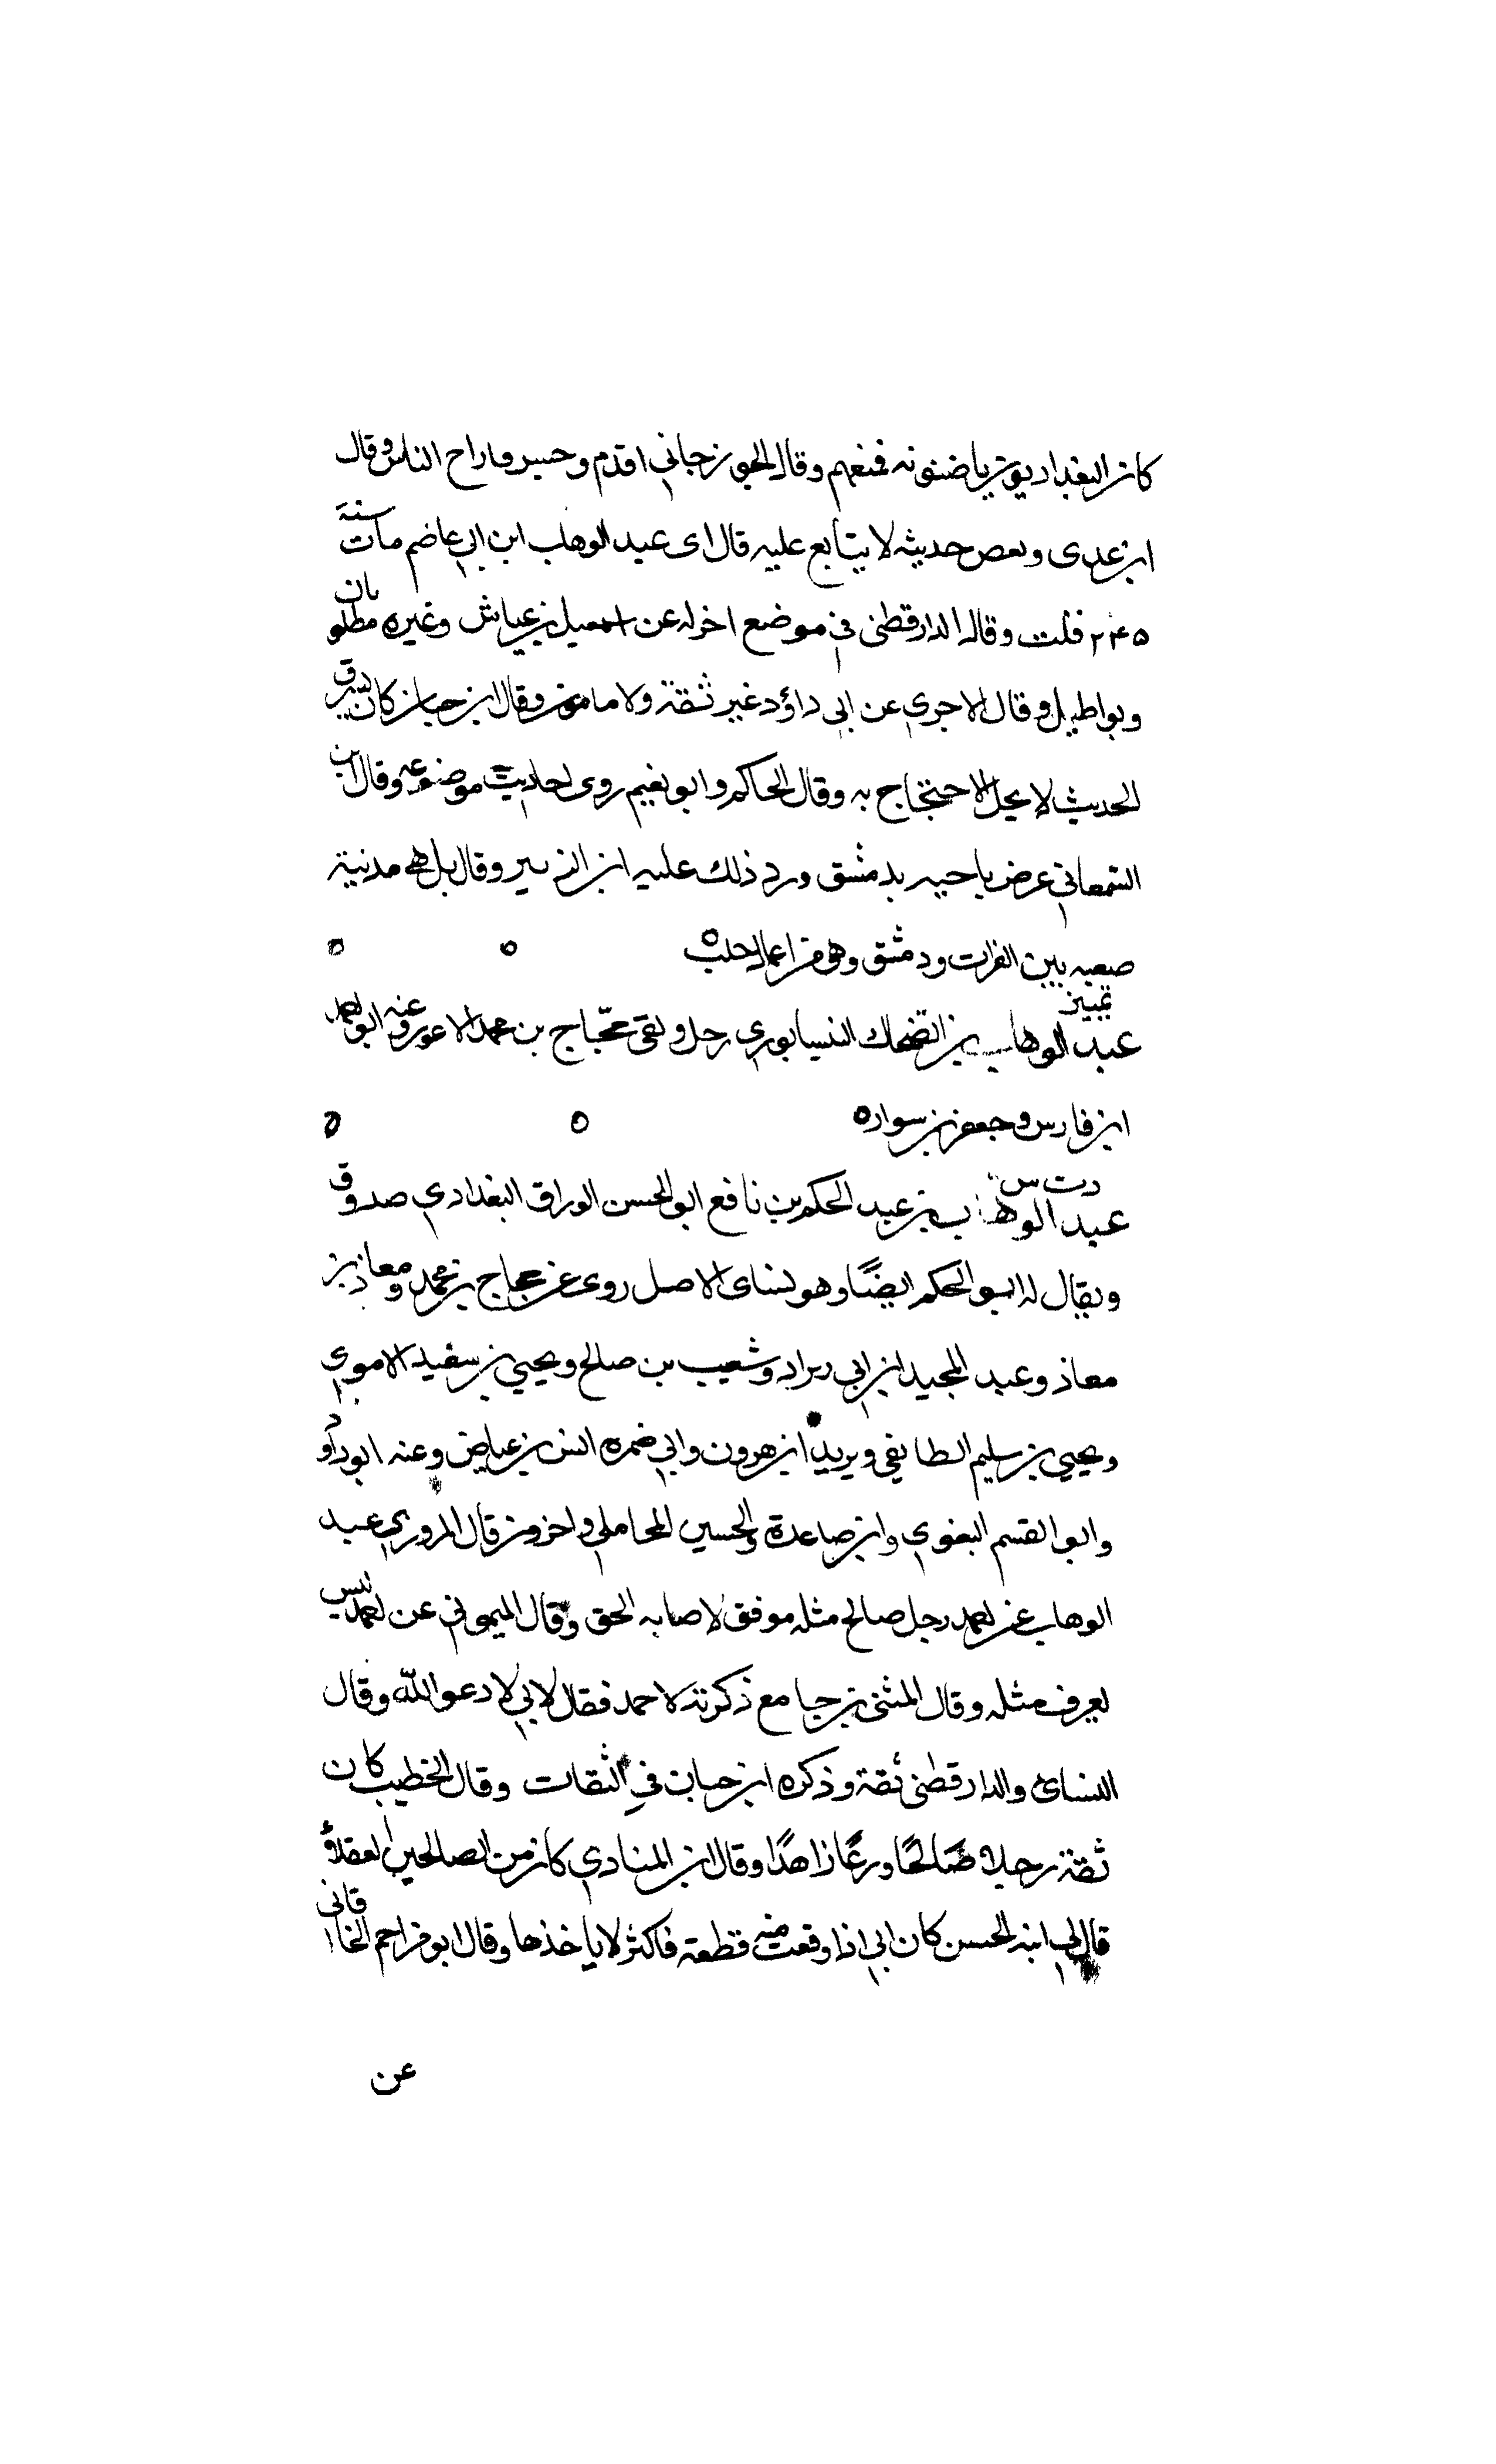 كان البغداديون يأخذونه فمنعهم وقال الجوزجاني اقدم وجسر وراح الناس وقال
ابن عدى وبعض حديثه لا يتابع عليه قال اى عبد الوهاب ابن ابي عاصم مات سنة
٢٤٥ قلت وقال الدارقطنى في موضع اخر له عن اسمعيل بن عياش وغيره مقلوبات
وبواطيل وقال الاجري عن ابي داؤد غير ثقة ولا مامون وقال ابن حبان كان يسرق
الحديث لا يحل الاحتجاج به وقال الحاكم وابو نعيم روى احاديث موضوعه وقال ابن
السمعاني عرض ناحيه بدمشق ورد ذلك عليه ابن الاثير وقال بل هى مدنية
صغيه بين الفرات ودمشق وهى من اعمال حلب ه
تمييز
عبد الوهاب بن الضحاك النيسابوري رحل ولقى حجاج بن محمد الاعور وعنه ابو احمد
ابن فارس وجعفر بن سواره
د ت س
عبد الوهاب بن عبد الحكم بن نافع ابو الحسن الوراق البغدادي صدوق
ويقال له ابو الحكم ايضًا وهو نساى الاصل روى عن حجاج بن محمد ومعاذ بن
معاذ وعبد المجيد ابن ابي رواد وشعيب بن صالح ويحيي بن سعيد الاموي
ويحيي بن سليم الطايفى ويزيد ابن هرون وابي ضمره انس بن عياض وعنه ابو داؤد
وابو القسم البغوي وابن صاعدة والحسين المحاملي واخرون قال المروزي عبد
الوهاب عن احمد رجل صالح مثله موفق لاصابه الحق وقال الميموني عن احمد ليس
يعرف مثله وقال المثنى بن جامع ذكرته لاحمد فقال لابي لادعو الله وقال
النسائ والدارقطنى ثقة وذكره ابن حبان في الثقات وقال الخطيب كان
ثقة رجلا صالحًا ورعًا زاهدًا وقال ابن المنادي كان من الصالحين العقلاء
قال لي ابنه الحسن كان ابي اذا وقعت منه قطعة فاكثر لا ياخذها وقال ابو مزاحم الخاقانى
عن